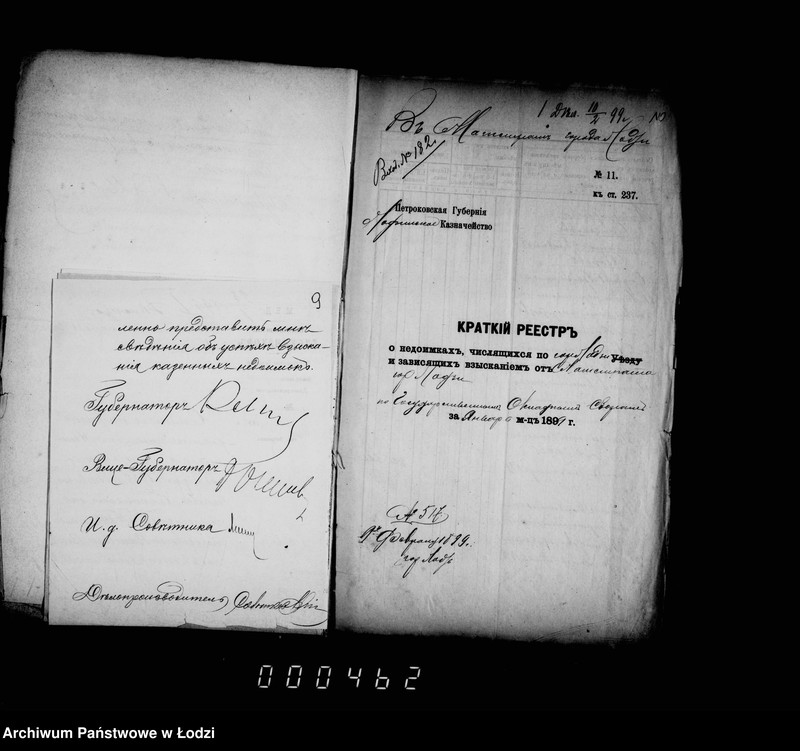 9
ленно представить мнѣ
свѣдѣнія объ успѣхѣ взыска-
нія казенныхъ недоимокъ.
Губернаторъ
Вице-Губернаторъ
И. д. Совѣтника
Дѣлопроизводитель
1 Дѣл. 10/2 99 г.
Въ Магистратъ города Лодзи
Вход. № 182
№ 11.
къ ст. 237.
Петроковская Губернія
Лодзинское Казначейство
КРАТКІЙ РЕЕСТРЪ
о недоимкахъ, числящихся по городу Лодзи уѣзду
и зависящихъ взысканіемъ отъ Магистрата
гор Лодзи
по Государственнымъ Окладнымъ Сборамъ
за Январь м-цъ 1899 г.
№ 517
Февраля 1899.
гор Лодзь
000462
Archiwum Państwowe w Łodzi